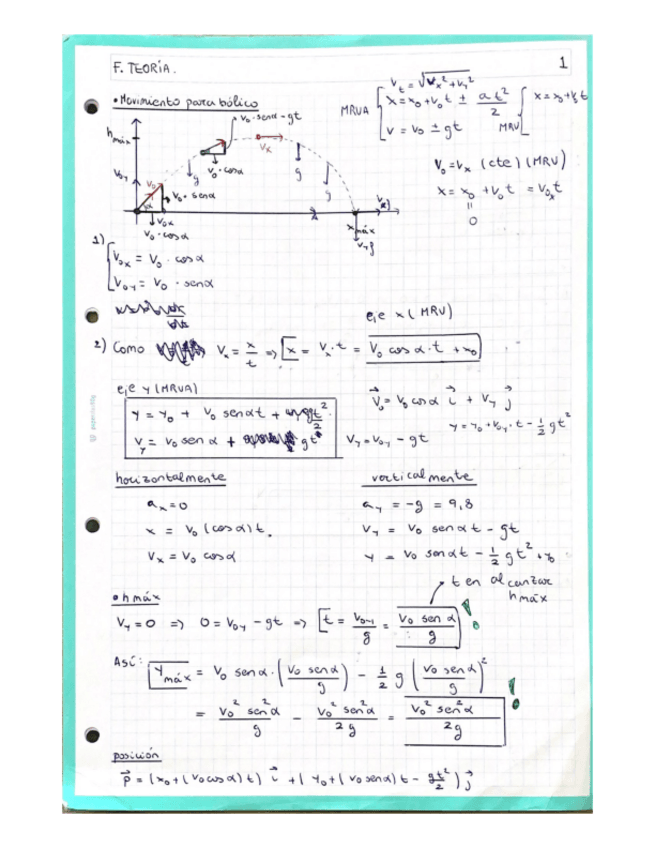 F. TEORÍA. 1
• Movimiento parabólico
Vt = √Vx² + Vy²
MRUA { x = x0 + V0 t ± a t²/2
V = V0 ± gt
MRU [ x = x0 + V t
hmáx
V0 · senα - gt
Vx
V0 · cosα
g
g
g
V0y
V0
V0 · senα
α
V0x
V0 · cosα
xmáx
Vy
V0 = Vx (cte) (MRU)
x = x0 + V0 t = V0x t
=
0
1) [ V0x = V0 · cosα
V0y = V0 · senα
eje x (MRU)
2) Como Vx = x/t => [ x = Vx · t = V0 cos α · t + x0
eje y (MRUA)
V⃗ = V0 cosα i⃗ + Vy j⃗
y = y0 + V0 senα t + gt²/2
y = y0 + V0y · t - 1/2 gt²
Vy = V0 sen α + gt
Vy = V0y - gt
horizontalmente verticalmente
ax = 0 ay = -g = 9,8
x = V0 (cosα) t. Vy = V0 senαt - gt
Vx = V0 cosα y = V0 senαt - 1/2 gt² + y0
t en alcanzar
hmáx
• hmáx
Vy = 0 => 0 = V0y - gt => [ t = V0y/g = V0 sen α/g !
Así: ymáx = V0 senα · (V0 senα/g) - 1/2 g (V0 senα/g)²
= V0² sen²α/g - V0² sen²α/2g = V0² sen²α/2g !
posición
p⃗ = (x0 + (V0 cosα) t) i⃗ + (y0 + (V0 senα) t - gt²/2) j⃗